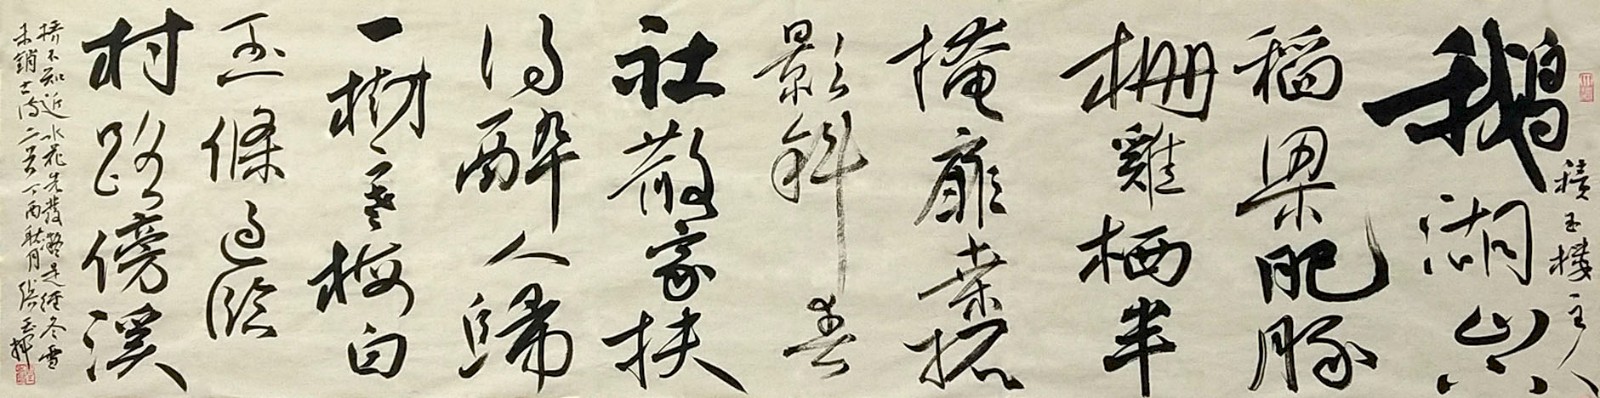 積玉樓主人
鵝湖山下
稻粱肥豚
柵雞栖半
掩扉桑柘
影斜春
社散家扶
得醉人歸
一樹寒梅白
玉條迥臨
村路傍溪
橋不知近水花先發疑是經冬雪
未銷古詩二首丁酉秋月張玉輝